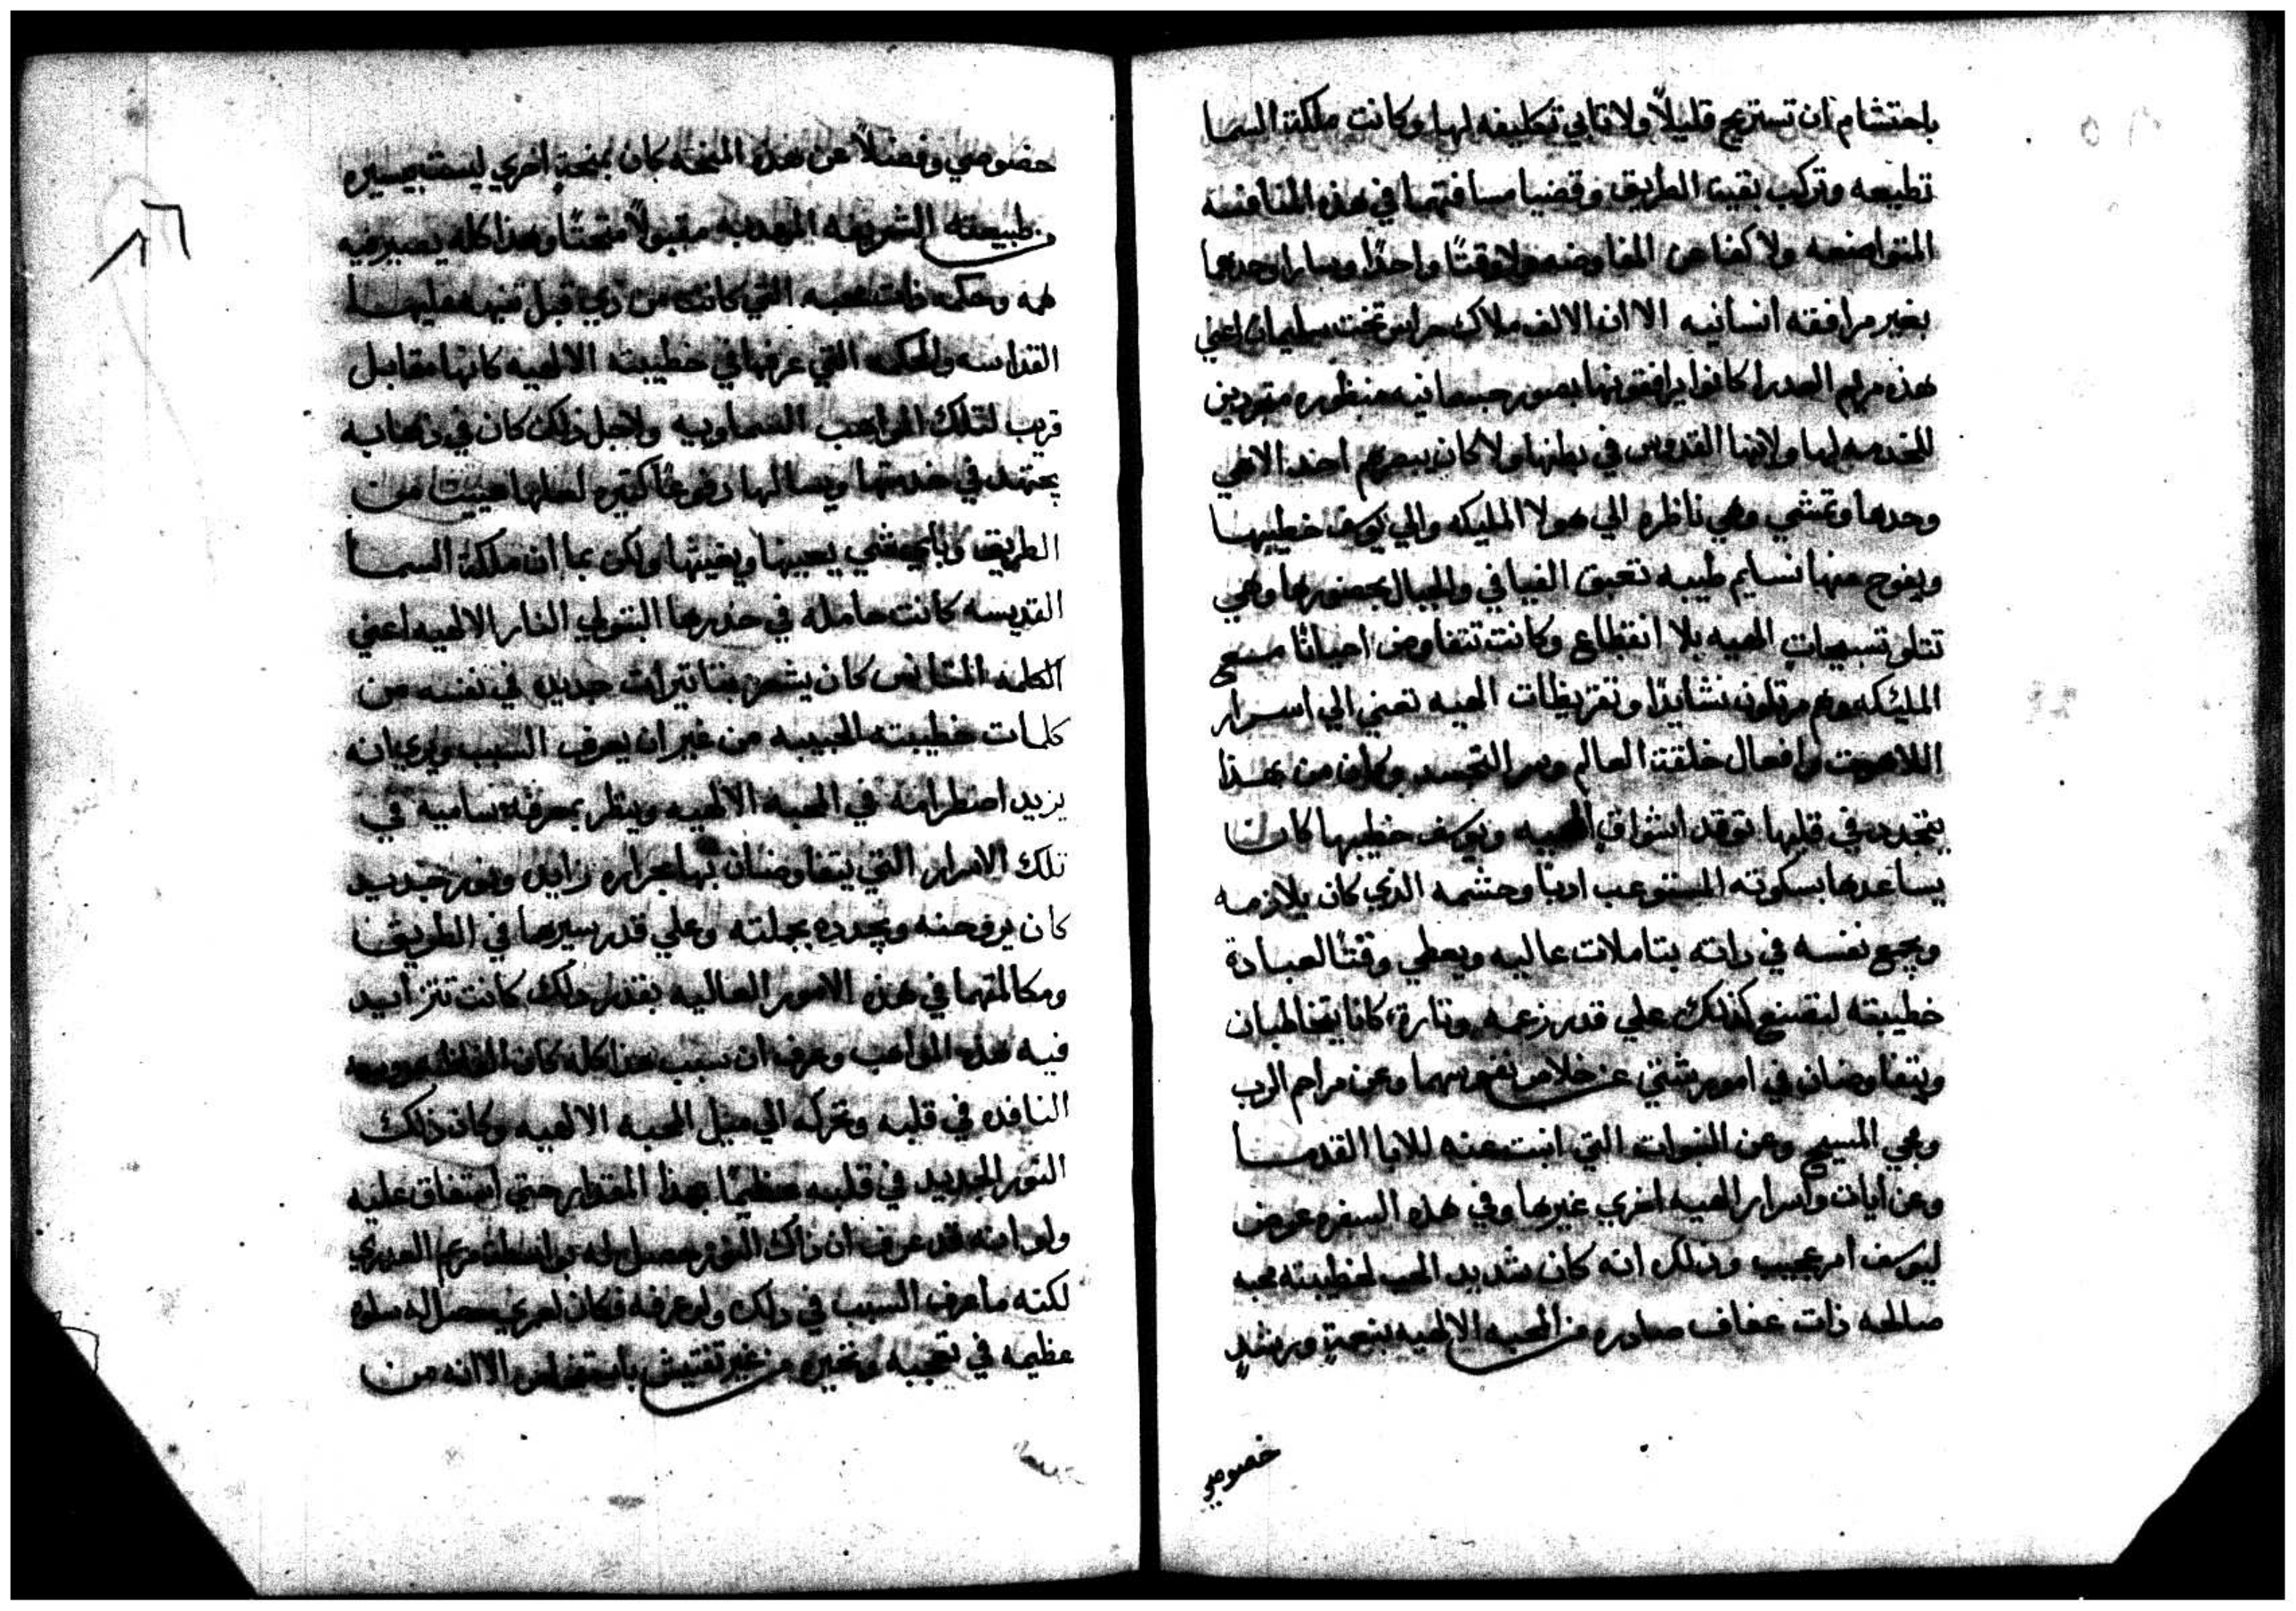 باحتشام ان تستريح قليلاً ولا تابي تكليفه لها وكانت ملكة السما
تطيعه وتركب بقية الطريق وقضيا مسافتهما في هذه المنافسه
المتواضعه ولا كفا عن المفاوضه ولا وقتًا واحدًا وسارا وحدهما
بغير مرافقه انسانيه الا ان الالف ملاك حراس تخت سليمان اعني
هذه مريم العدرا كانوا يرافقونها بصور جسمانيه منظوره متقيدين
للخدمه لها ولابنها القدوس في بطنها ولا كان يبصرهم احد الا هي
وحدها وتمشي وهي ناظره الي هولا المليكه والي يوسف خطيبها
ويفوح منها نسايم طيبه تعبق الفيافي والجبال بحضورها وهي
تتلو تسبيحات الهيه بلا انقطاع وكانت تتفاوض احيانًا مع
المليكه وهم يرتلون نشايدًا وتقريظات الهيه تعني الي اسرار
اللاهوت وافعال خلقة العالم وسر التجسد وكان من هذا
يتجدد في قلبها توقد اشواق الهيه ويوسف خطيبها كان
يساعدها بسكوته المستوعب ادبًا وحشمه الذي كان يلازمه
ويجمع نفسه في داته بتاملات عاليه ويعطي وقتًا لعبادة
خطيبته لتصنع كذلك علي قدر زعمه وتارة كانا يتخاطبان
ويتفاوضان في امور شتي عن خلاص نفوسهما وعن مراحم الرب
ومجي المسيح وعن النبوات التي انبت عنه للابا القدما
وعن ايات واسرار الهيه اخري غيرها وفي هذه السفره عرض
ليوسف امر عجيب ودلك انه كان شديد الحب لخطيبته محبه
صالحه ذات عفاف صادره من المحبه الالهيه بنعمةٍ ورشدٍ
خصوصي
خصوصي وفضلاً عن هذه المنحه كان بمنحةٍ اخري ليست بيسيره
طبيعته الشريفه المهدبه مقبولاً وهذا كله يصير فيه
القداسه والحكمه التي عرفها في خطيبته الالهيه كانها مقابل
قريب لتلك المواهب السماويه ولاجل ذلك كان في ذهابه
يجتهد في خدمتها ويسالها دفوعًا كثيره لعلها عييت من
الطريق وباي شي يعينها ويغيثها ولكن بما ان ملكة السما
القديسه كانت حامله في خدرها البتولي النار الالهيه اعني
الكلمه المتانس كان يشعر بتاثيرات جديده في نفسه من
كلمات خطيبته الحبيبه من غير ان يعرف السبب ويري انه
يزيد اضطرامه في المحبه الالهيه وينظر بمعرفه ساميه في
تلك الاسرار التي يتفاوضان بها بحراره زايده ونور جديد
كان يروحنه ويجدده بجملته وعلي قدر سيرهما في الطريق
ومكالمتهما في هذه الامور العاليه بقدر دلك كانت تتزايد
فيه هذه المواهب وعرف ان سبب هذا كله كان الفاظ عروسه
النافده في قلبه وتحركه الي ميل المحبه الالهيه وكان ذلك
النور الجديد في قلبه عظيمًا بهذا المقدار حتي استفاق عليه
ولو انه قد عرف ان ذاك النور حصل له بواسطة مريم العدري
لكنه ما عرف السبب في دلك ولو عرفه فكان لعمري يحصل له سلوه
عظيمه في تعجبه وتحيره من غير تفتيش باستفحاص الا انه من